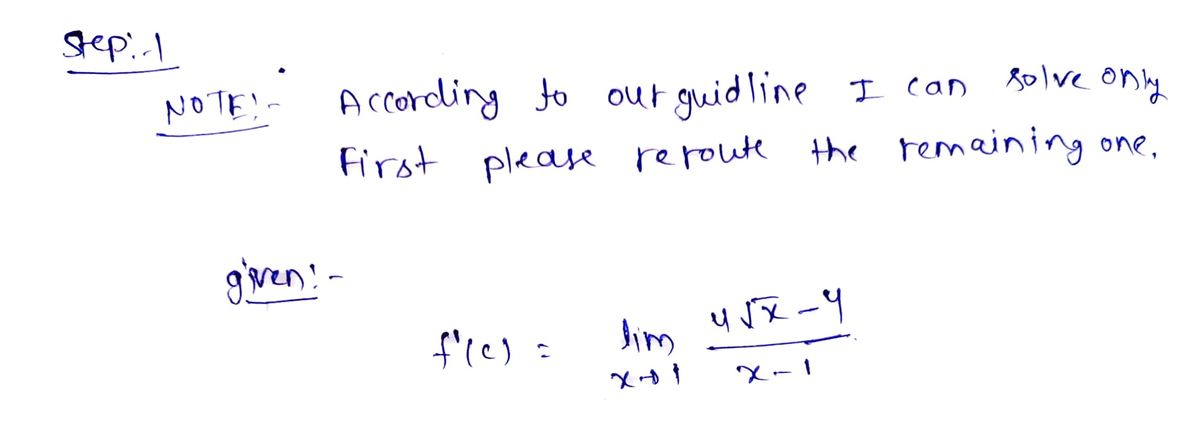 Step:-1
NOTE:- According to our guidline I can solve only
First please reroute the remaining one.
given:-
f'(c) = lim x→1 4√x - 4 / x - 1